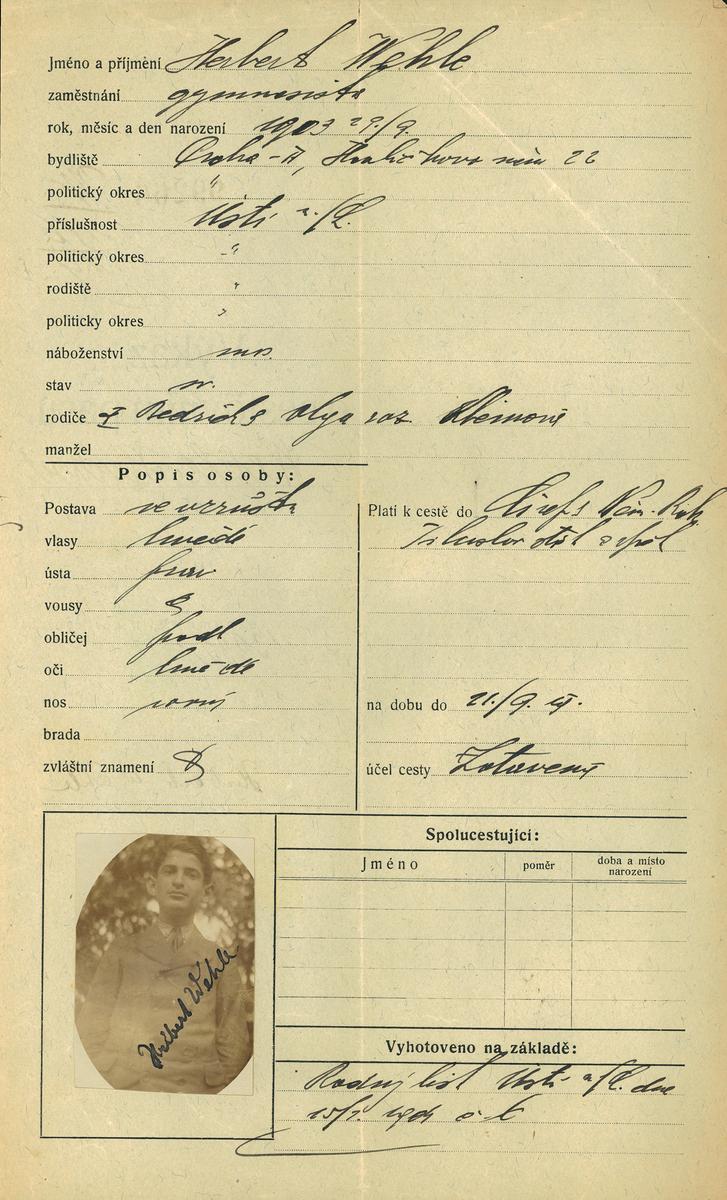 Jméno a příjmení Herbert Wehle
zaměstnání gymnasista
rok, měsíc a den narození 1903 29/9.
bydliště Praha-II, Havlíčkovo nám 22
politický okres "
příslušnost Ústí n./L.
politický okres -"
rodiště "
politicky okres "
náboženství mos.
stav sv.
rodiče Bedřich & Olga roz. Kleinová
manžel
Popis osoby:
Postava ve vzrůstu
vlasy hnědé
ústa prav
vousy
obličej podl
oči hnědé
nos rovný
brada
zvláštní znamení
Platí k cestě do Něm. Rak.
zpět
na dobu do 21./9.
účel cesty Zotavení
Herbert Wehle
Spolucestující:
Jméno poměr doba a místo narození
Vyhotoveno na základě:
Rodný list Ústí n/L. dne